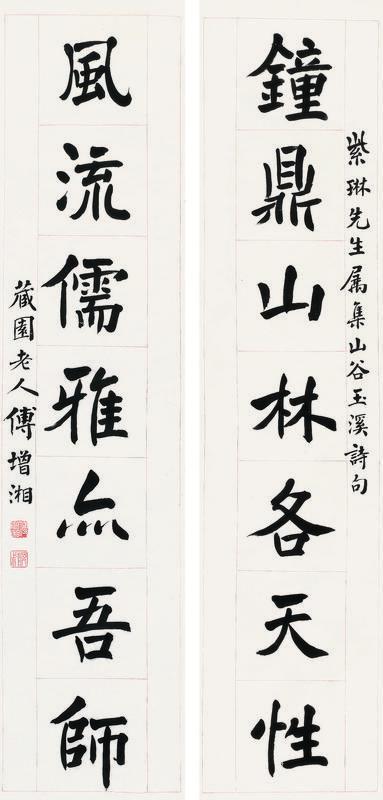 鐘鼎山林各天性
紫琳先生属集山谷玉溪詩句
風流儒雅亦吾師
藏園老人傅增湘